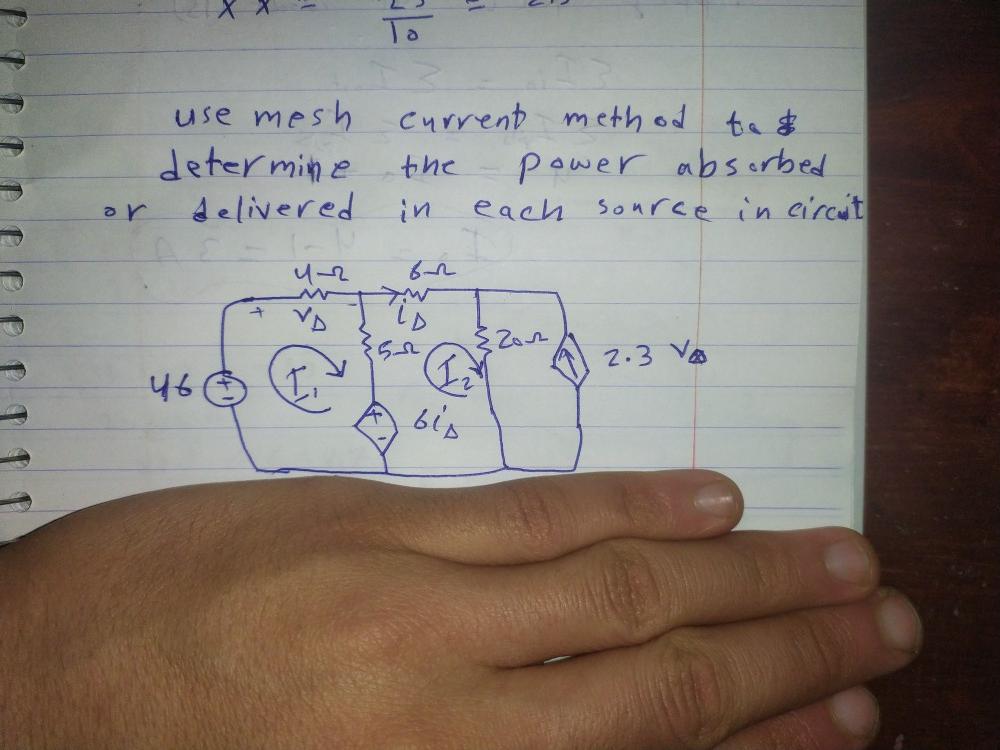 x x = 25/10 = 2.5
use mesh current method to
determine the power absorbed
or delivered in each source in circuit
4Ω 6Ω
+ - 
vΔ iΔ
5Ω 20Ω 2.3 vΔ
46 + - I1 I2
+ - 6iΔ